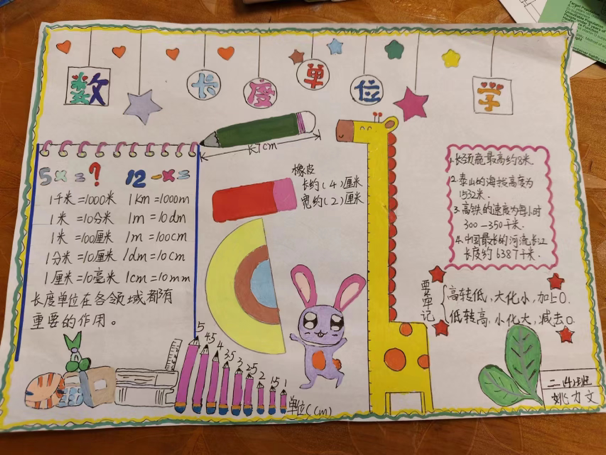 数 长 度 单 位 学
长7cm
5×3=? 12-×3
1千米=1000米 1km=1000m
1米=10分米 1m=10dm
1米=100厘米 1m=100cm
1分米=10厘米 1dm=10cm
1厘米=10毫米 1cm=10mm
长度单位在各领域都有
重要的作用。
橡皮
长约(4)厘米
宽约(2)厘米
1.长颈鹿最高约8米
2.泰山的海拔高度为
1532米.
3.高铁的速度为每小时
300—350千米.
4.中国最长的河流长江
长度约6387千米.
要牢记
高转低,大化小,加上0.
低转高,小化大,减去0.
5 4.5 4 3.5 3 2.5 2 1.5 1
单位(cm)
二.4班
姚力文